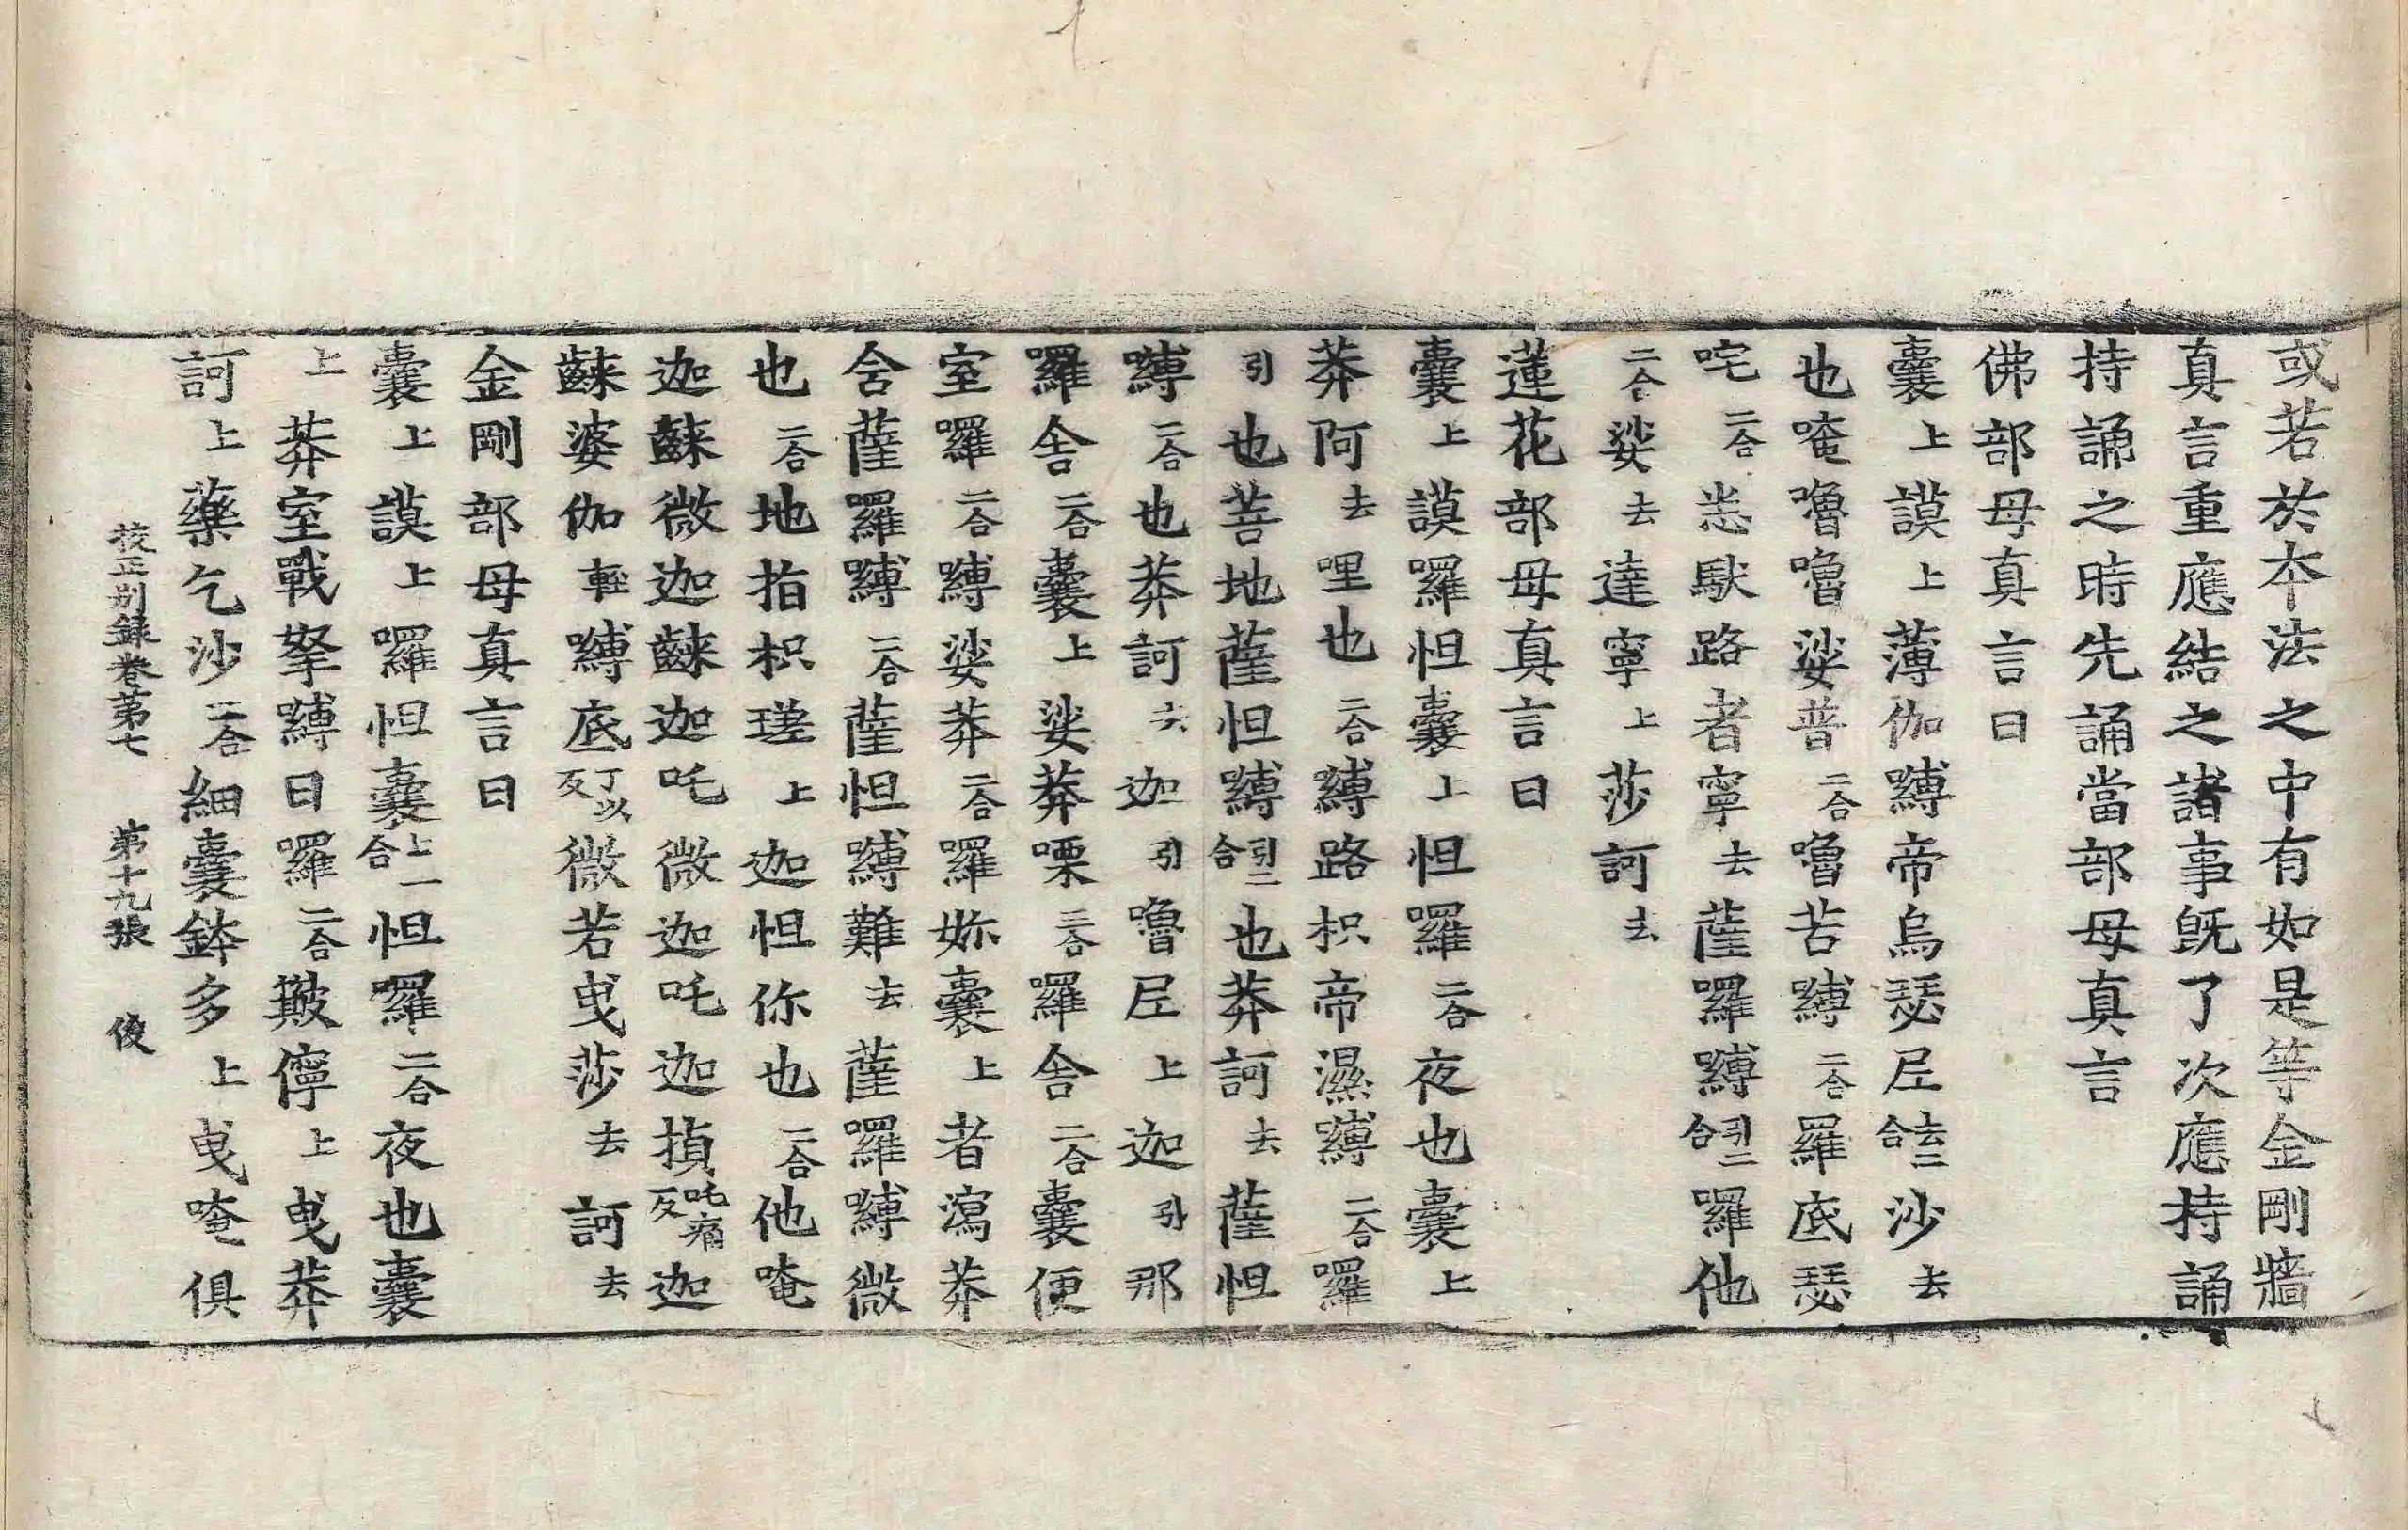 或若於本法之中有如是等金剛牆
真言重應結之諸事既了次應持誦
持誦之時先誦當部母真言
佛部母真言曰
囊上謨上薄伽嚩帝烏瑟尼去二合沙去
也唵嚕嚕娑普二合嚕苦嚩二合羅底瑟
咤二合悉馱路者寧去薩羅嚩引二合囉他
二合娑去達寧上莎訶去
蓮花部母真言曰
囊上謨囉怛囊上怛囉二合夜也囊上
莽阿去哩也二合嚩路枳帝濕嚩二合囉
引也菩地薩怛嚩引二合也莽訶去薩怛
嚩二合也莽訶去迦引嚕尼上迦引那
羅舍二合囊上娑莽㗚三合羅舍二合囊便
室囉二合嚩娑莽二合羅妳囊上者瀉莽
舍薩羅嚩二合薩怛嚩難去薩羅嚩微
也二合地指枳瑳上迦怛你也二合他唵
迦䶅微迦䶅迦吒微迦吒迦損吒痛反迦
䶅婆伽輕嚩底丁以反微若曳莎去訶去
金剛部母真言曰
囊上謨上囉怛囊上一合怛囉二合夜也囊
上莽室戰拏嚩日囉二合皺儜上曳莽
訶上藥乞沙二合細囊鉢多上曳唵俱
校正別錄卷第七 第十九張 俊